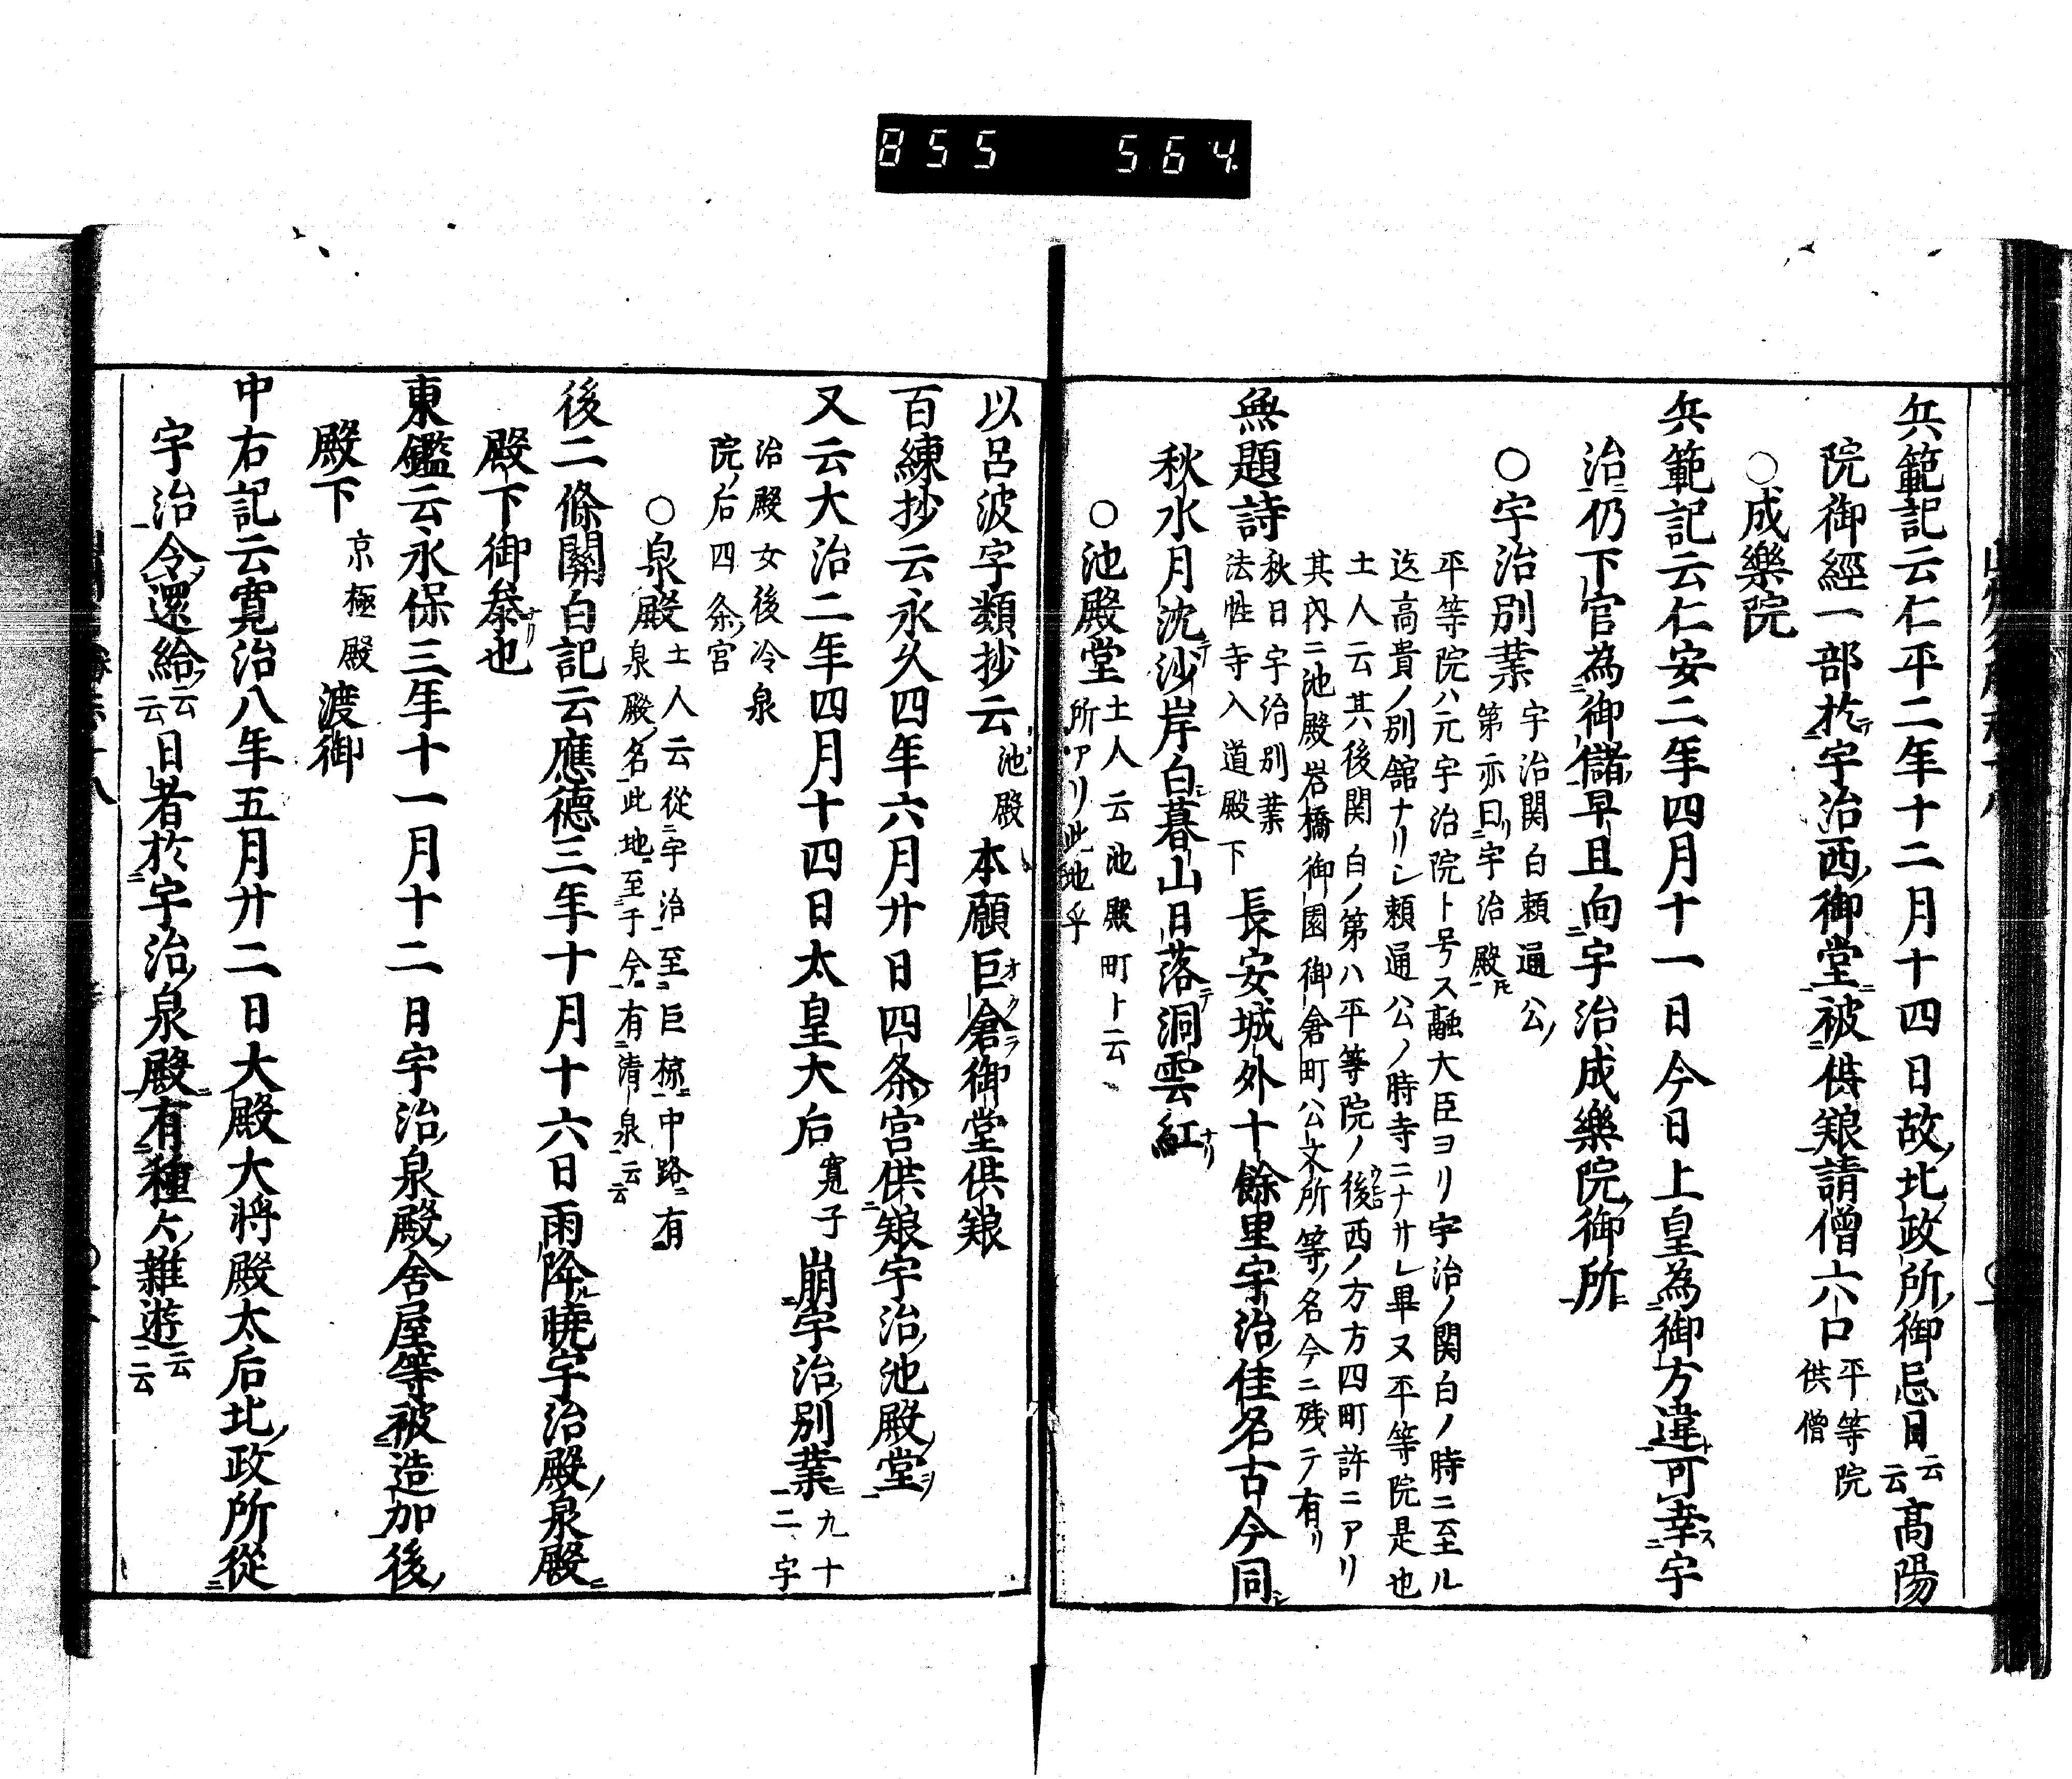 855 564
兵範記云仁平二年十二月十四日故北政所御忌日云云高陽
院御經一部於宇治西御堂被供粮請僧六口平等院供僧
○成樂院
兵範記云仁安二年四月十一日今日上皇為御方違可幸宇
治仍下官為御儲早旦向宇治成樂院御所
○宇治別業宇治関白頼通公ノ
第亦曰宇治殿
平等院ハ元宇治院ト号ス融大臣ヨリ宇治ノ関白ノ時ニ至ル
迄高貴ノ別舘ナリシ頼通公ノ時寺ニナサレ畢又平等院是也
土人云其後関白ノ第ハ平等院ノ後西ノ方方四町許ニアリ
其内ニ池殿岩橋御園御倉町公文所等ノ名今ニ残テ有リ
無題詩秋日宇治別業
法性寺入道殿下長安城外十餘里宇治佳名古今同
秋水月沈沙岸白暮山日落洞雲紅
○池殿堂土人云池殿町ト云
所アリ此地乎
以呂波字類抄云池殿本願巨倉御堂供粮
百練抄云永久四年六月廿日四条宮供粮宇治池殿堂
又云大治二年四月十四日太皇大后寛子崩宇治別業九十二宇
治殿女後冷泉
院后四条宮
○泉殿土人云從宇治至巨椋中路有
泉殿名此地至于今有清泉云云
後二條關白記云應德三年十月十六日雨降曉宇治殿泉殿
殿下御參也
東鑑云永保三年十一月十二日宇治泉殿舍屋等被造加後
殿下京極殿渡御
中右記云寛治八年五月廿二日大殿大将殿太后北政所從
宇治令還給云云日者於宇治泉殿有種々雜遊云云